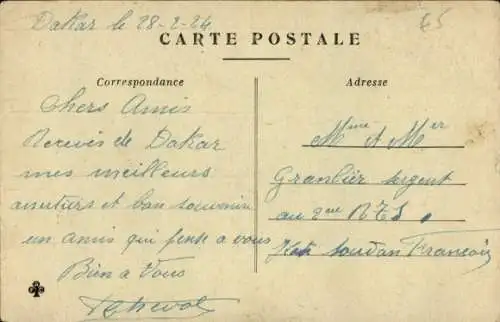 Dakar le 28-2-24
65
CARTE POSTALE
Correspondance
Adresse
Chers Amis
Recevis de Dakar
mes meilleurs
amitiers et bon souvenir
un amis qui pense a vous
Bien a Vous
Mme et Mer
Granlier sergent
au 2me RTS.
Kati soudan Francois